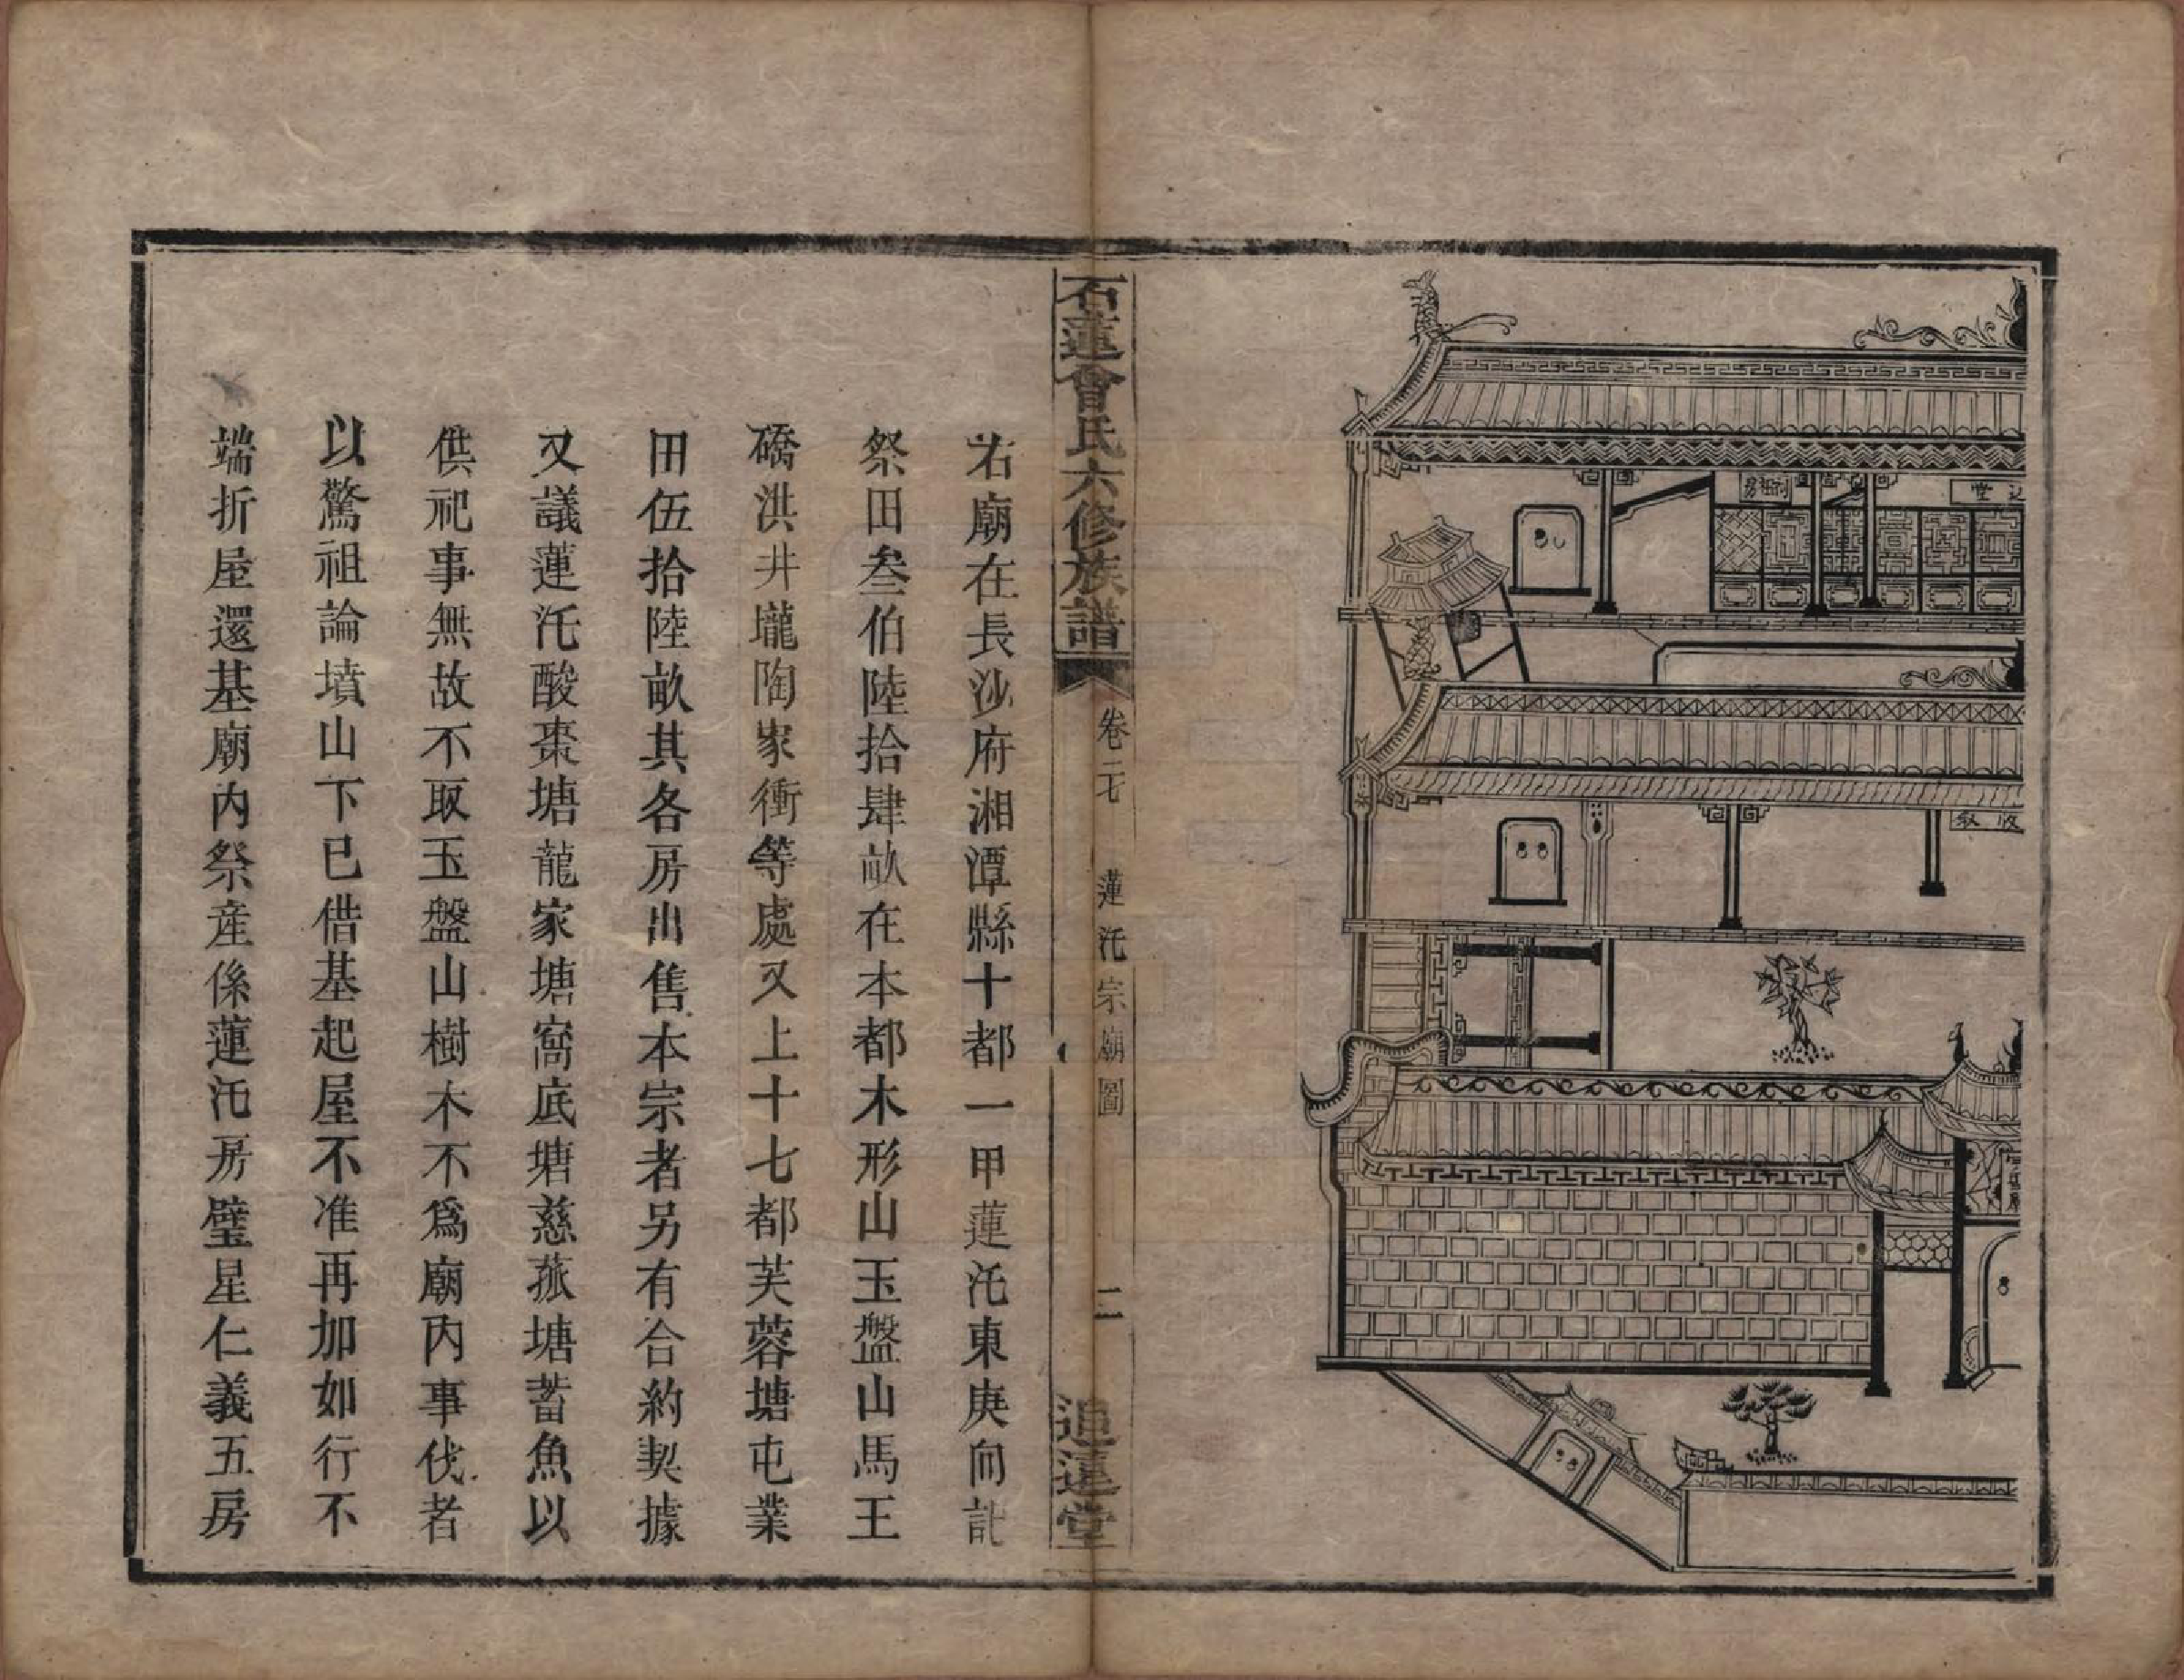 享堂
收叙
石蓮曾氏六修族譜
卷二七
蓮沱宗廟圖
二
追遠堂
右廟在長沙府湘潭縣十都一甲蓮沱東庚向計
祭田叁伯陸拾肆畝在本都木形山玉盤山馬王
礄洪井壠陶家衝等處又上十七都芙蓉塘屯業
田伍拾陸畝其各房出售本宗者另有合約契據
又議蓮沱酸棗塘龍家塘窩底塘慈菰塘蓄魚以
供祀事無故不取玉盤山樹木不爲廟內事伐者
以驚祖論墳山下已借基起屋不准再加如行不
端折屋還基廟內祭産係蓮沱房璧星仁義五房